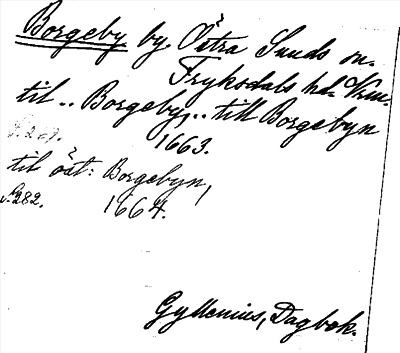 Borgeby by Östra Sunds sn.
Fryksdals hd. Vrm.
till .. Borgeby, .. till Borgebyn
1663.
til öst: Borgebyn,
s. 282. 1664.
Gyllenius, Dagbok.